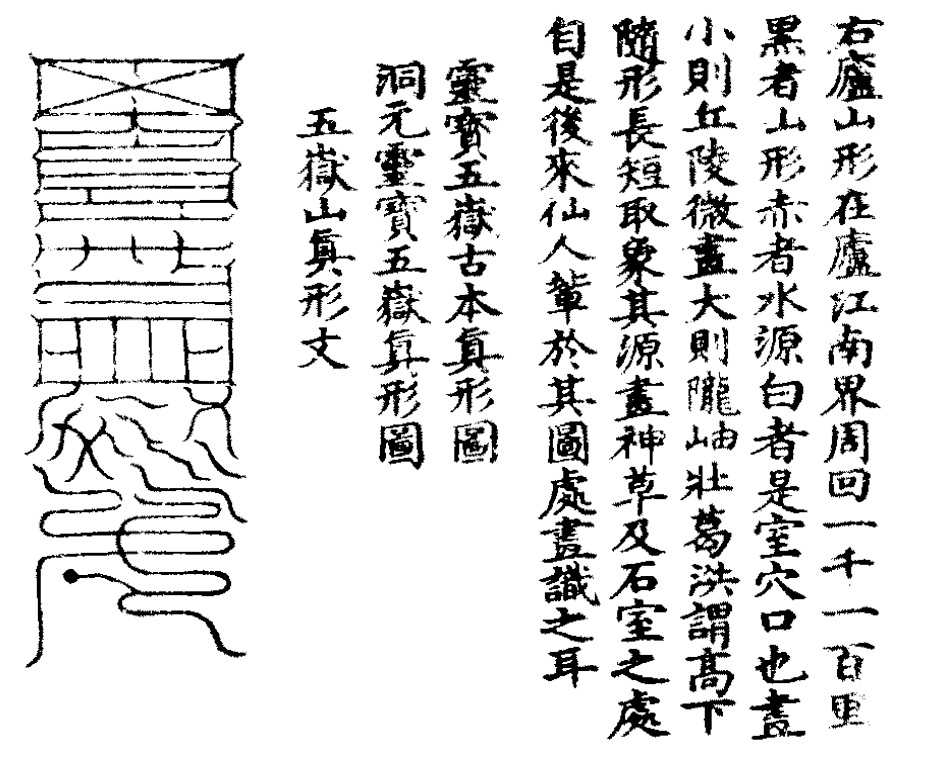 右廬山形在廬江南界周回一千一百里
黒者山形赤者水源白者是室穴口也畫
小則丘陵微畫大則隴岫壯葛洪謂高下
隨形長短取象其源畫神草及石室之處
自是後來仙人輩於其圖處畫識之耳
靈寶五嶽古本真形圖
洞元靈寶五嶽真形圖
五嶽山真形文